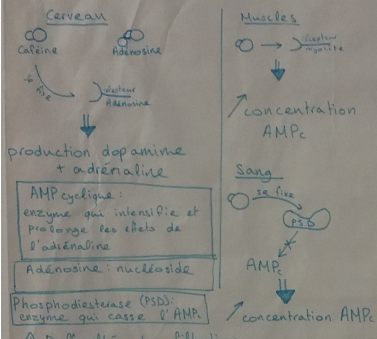 Cerveau
Caféine
Adénosine
se fixe
récepteur
Adénosine
production dopamine
+ adrénaline
AMP cyclique :
enzyme qui intensifie et
prolonge les effets de
l'adrénaline
Adénosine : nucléoside
Phosphodiesterase (PSD) :
enzyme qui casse l'AMPc
Muscles
récepteur
↗ concentration
AMPc
Sang
se fixe
PSD
AMPc
↗ concentration AMPc